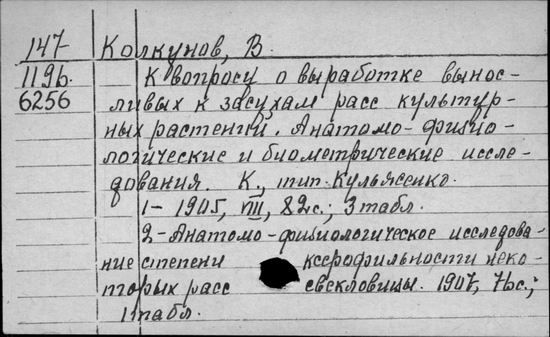 147 Колкунов, В.
119б. К вопросу о выработке вынос-
6256 ливых к засухам расс культур-
ных растений. Анатомо-физио-
логические и биометрические иссле-
дования. К., тип. Кульженко.
1- 1905, VIII, 82с.; 3 табл.
2- Анатомо-физиологическое исследова-
ние степени ксерофильности неко-
торых расс свекловицы. 1907, с.;
1 табл.